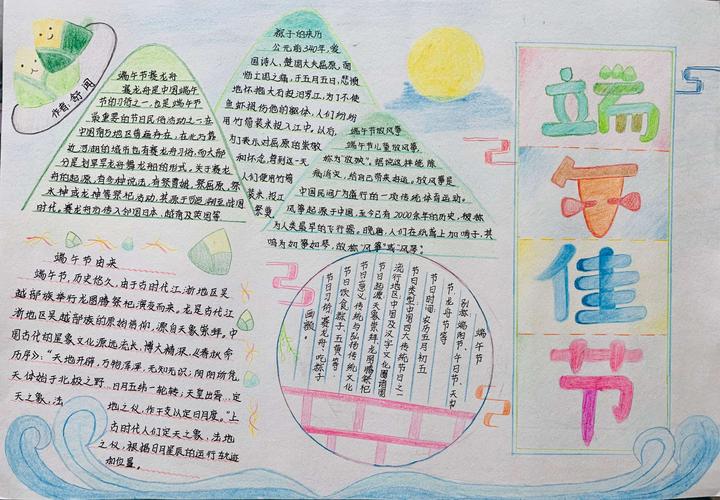 端午佳节
作者:舒闻
端午节赛龙舟
赛龙舟是中国端午
节的习俗之一,也是端午节
最重要的节日民俗活动之一,在
中国南方地区普遍存在,在北方靠
近河湖的城市也有赛龙舟习俗,而大部
分是划旱龙舟舞龙船的形式。关于赛龙
舟的起源,有多种说法,有祭曹娥,祭屈原,祭
水神或龙神等祭祀活动,其源于
时代。赛龙舟为传入邻国日本、越南及英国等
粽子的来历
公元前340年,爱
国诗人,楚国大夫屈原,面
临亡国之痛,于五月五日,悲愤
地怀抱大石投汨罗江,为了不使
鱼虾损伤他的躯体,人们纷纷
用竹筒装米投入江中。以后,
为了表示对屈原的崇敬
和怀念,每到这一天
人们便用竹筒
装米,投江
祭奠。
端午节放风筝
端午节儿童放风筝,
称为"放殃"。据说这样能除
病消灾,给自己带来好运。放风筝是
中国民间广为盛行的一项传统体育运动。
风筝起源于中国,至今已有2000余年的历史,被称
为人类最早的飞行器。晚唐,人们在纸鸢上加哨子,其
鸣如筝如琴,故称"风筝"或"风琴"。
端午节由来
端午节,历史悠久,由于古时代江、浙地区吴
越部族举行龙图腾祭祀演变而来。龙是古代江
浙地区吴越部族的原始信仰,源自天象崇拜。中
国古代的星象文化源远流长、博大精深,
历序》:"天地开辟,万物浑浑,无知无识;阴阳所凭
天体始于北极之野…日月五纬一轮转;天皇出焉…定
天之象,法
地之仪,作干支以定日月度。"上
古时代人们定天之象、法地
之仪,根据日月星辰的运行轨迹
和位置。
端午节
别称 端阳节、午日节、天中
节、龙舟节等
节日时间 农历五月初五
节日类型 中国四大传统节日之一
流行地区 中国及汉字文化圈诸国
节日起源 天象崇拜,龙图腾祭祀
节日意义 传统与弘扬传统文化
节日饮食 粽子、五黄等
节日习俗 赛龙舟、吃粽子